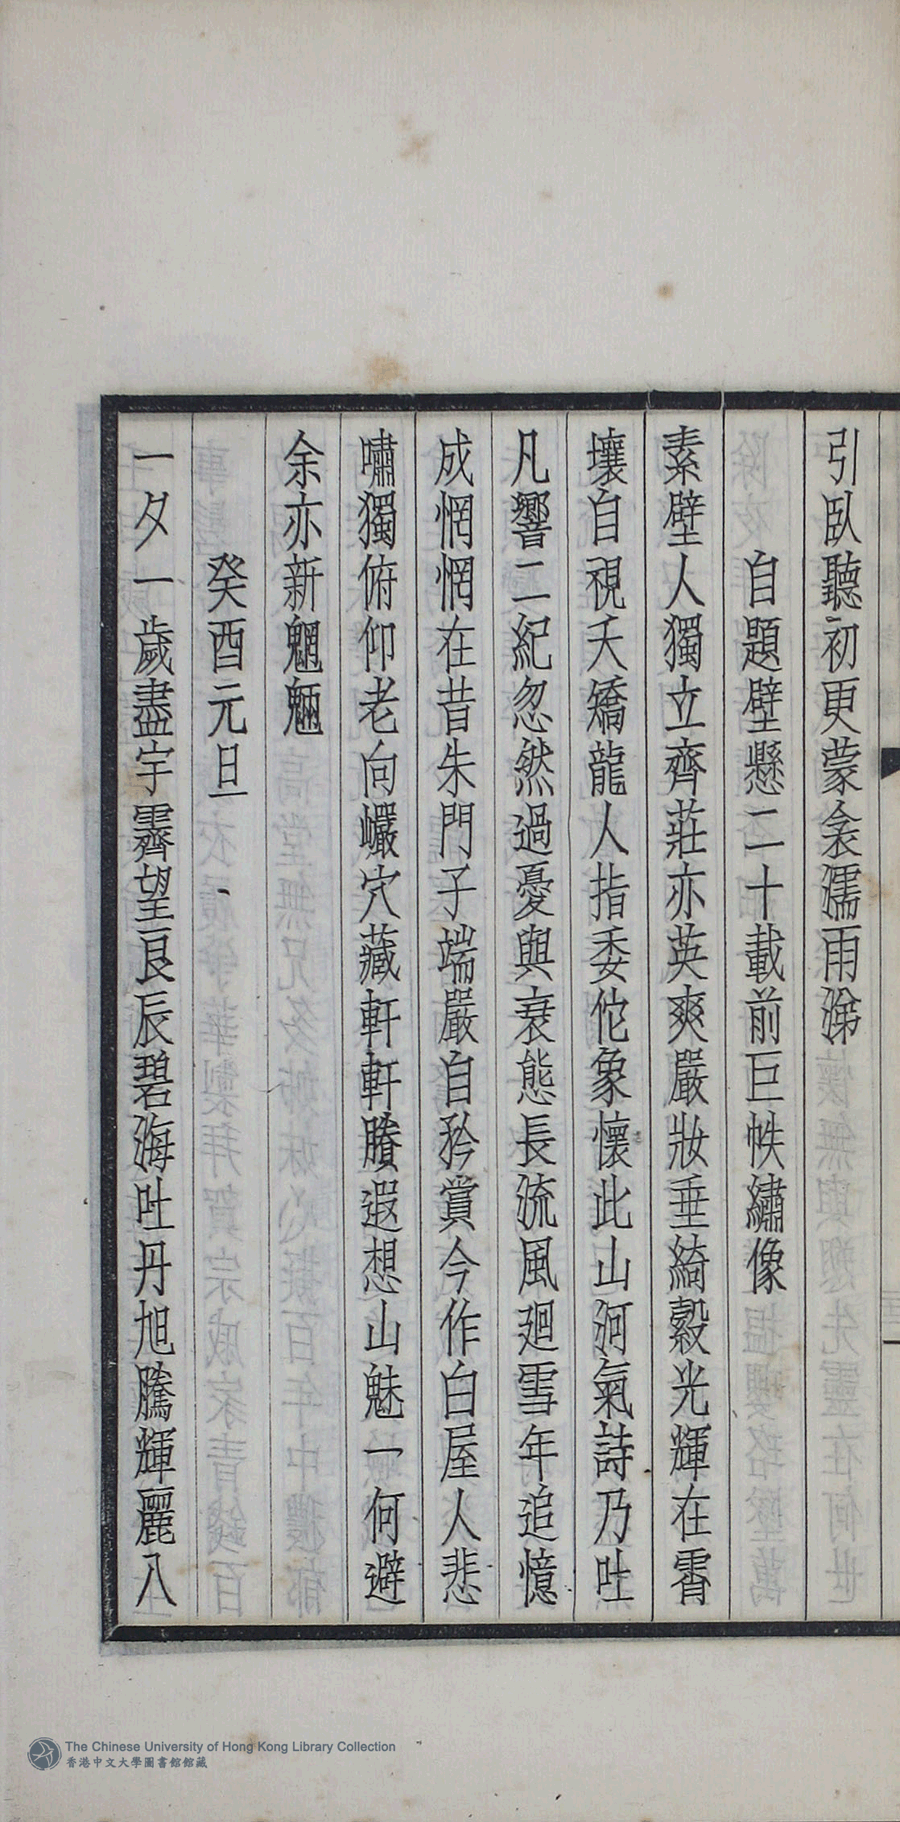 引臥聽初更蒙衾濡雨涕
自題壁懸二十載前巨帙繡像
素壁人獨立齊莊亦英爽嚴妝垂綺縠光輝在霄
壤自視夭矯龍人指委佗象懷此山河氣詩乃吐
凡響二紀忽然過憂與衰態長流風迴雪年追憶
成惘惘在昔朱門子端嚴自矜賞今作白屋人悲
嘯獨俯仰老向巘穴藏軒軒賸遐想山魅一何避
余亦新魍魎
癸酉元旦
一夕一歲盡宇霽望良辰碧海吐丹旭騰輝麗八
The Chinese University of Hong Kong Library Collection
香港中文大學圖書館館藏